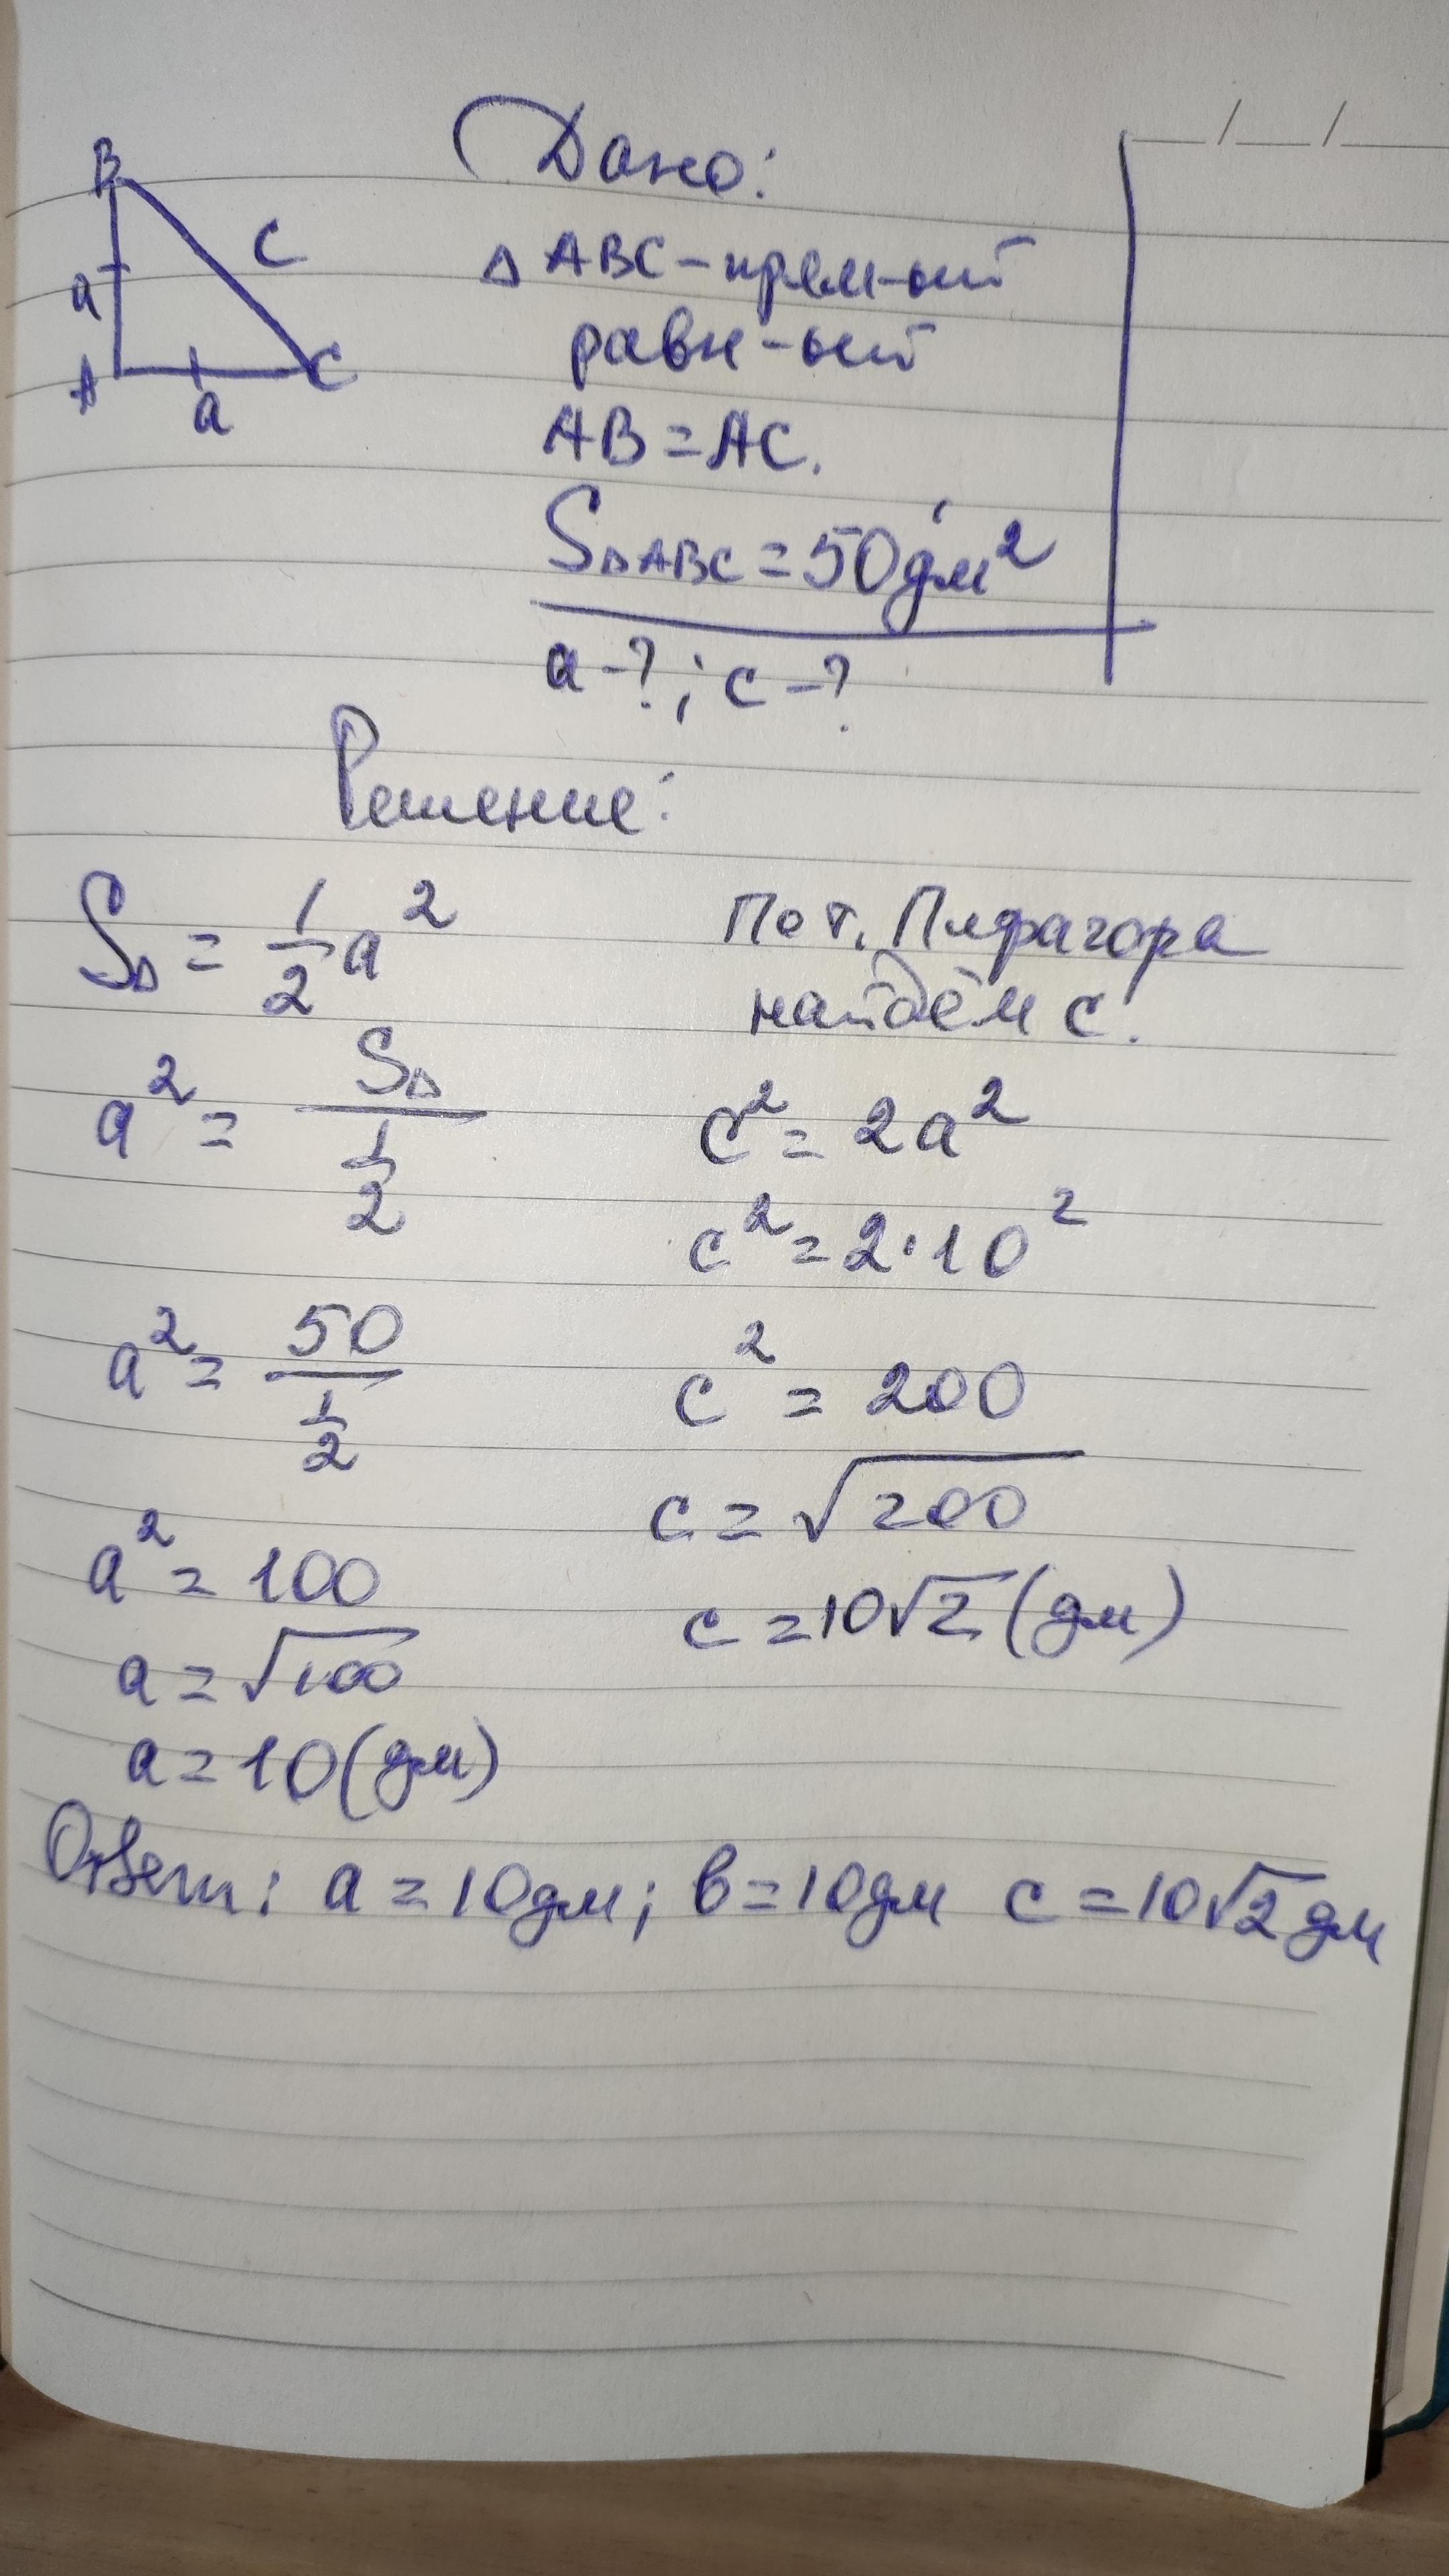 B
a
c
A
a
C
Дано:
△ ABC - прям-ый
равн-ый
AB = AC.
S△ABC = 50 дм²
a - ?; c - ?
Решение:
S△ = 1/2 a²
a² = S△ / 1/2
a² = 50 / 1/2
a² = 100
a = √100
a = 10 (дм)
По т. Пифагора
найдём c:
c² = 2a²
c² = 2·10²
c² = 200
c = √200
c = 10√2 (дм)
Ответ: a = 10 дм; в = 10 дм c = 10√2 дм